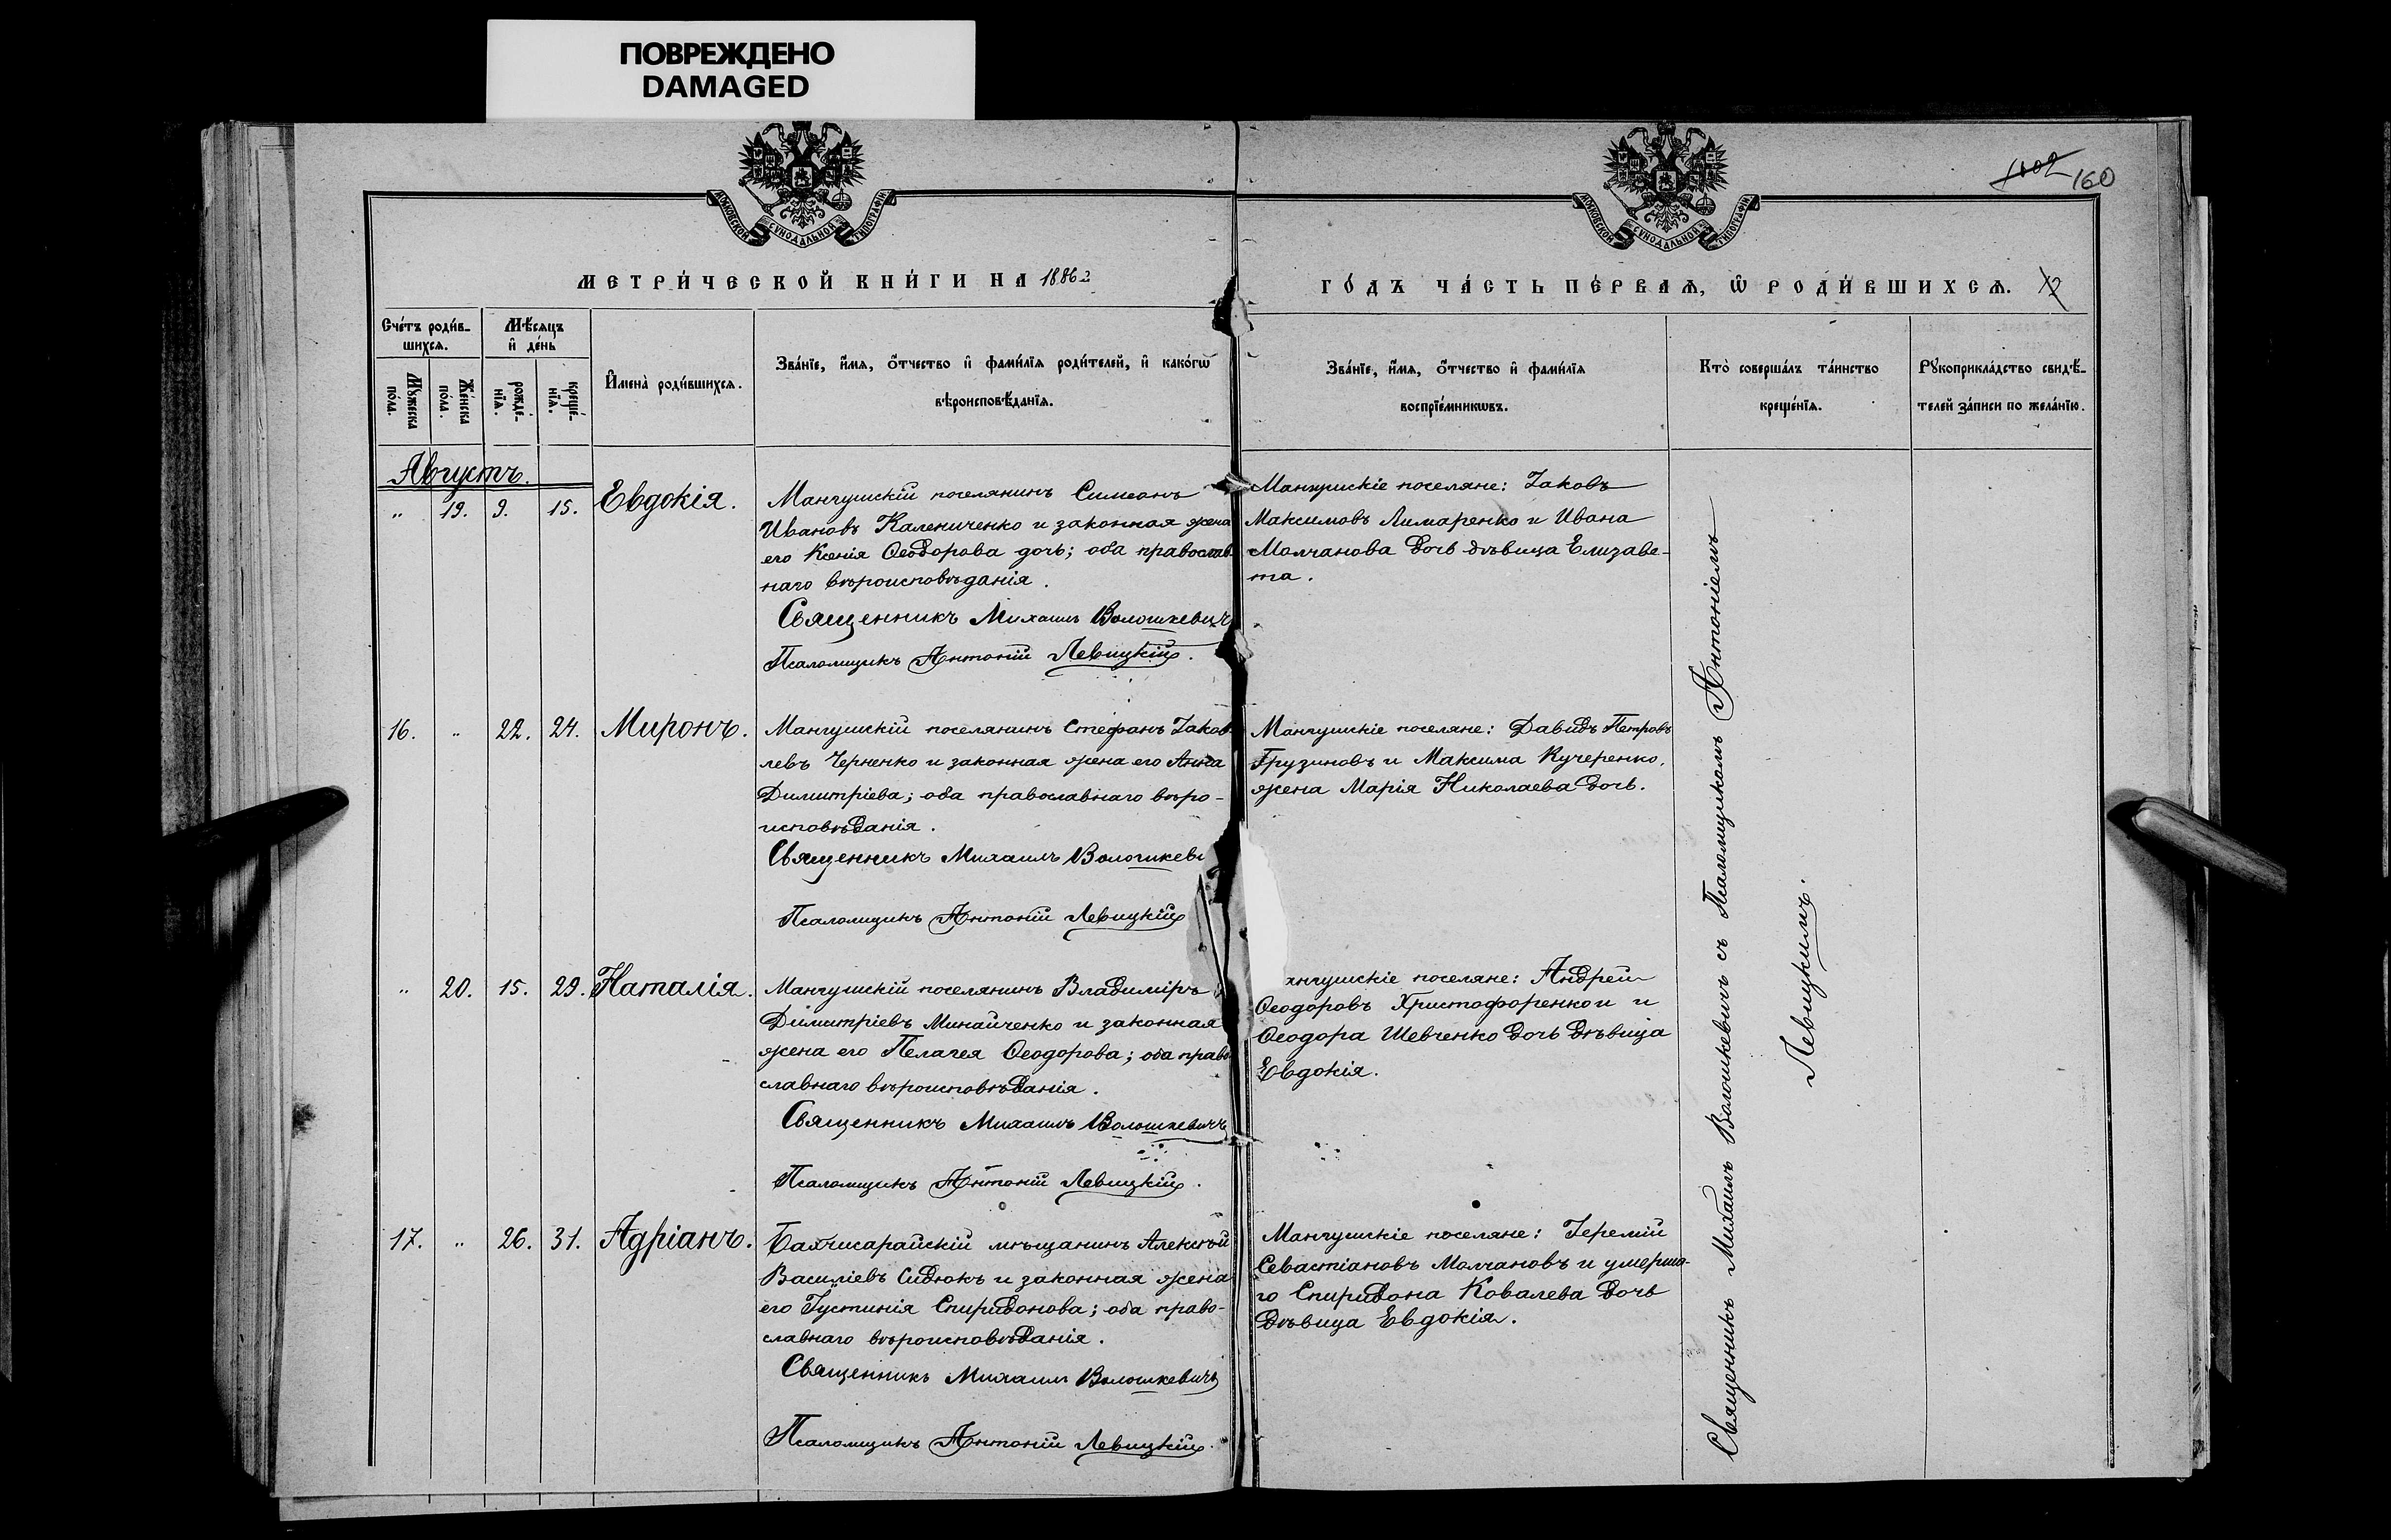 ПОВРЕЖДЕНО
DAMAGED
МОСКОВСКОЙ СѴНОДАЛЬНОЙ ТИПОГРАФІИ
МОСКОВСКОЙ СѴНОДАЛЬНОЙ ТИПОГРАФІИ
160
МЕТРИ́ЧЕСКОЙ КНИ́ГИ НА 1886
ГО́ДЪ ЧА́СТЬ ПЕ́РВАѦ, Ѡ РОДИ́ВШИХСѦ. 12
Сче́тъ роди́в-
шихсѧ.
Мꙋ́жеска
по́ла.
Же́нска
по́ла.
Мѣ́сѧцъ
и҆ де́нь
рожде́-
нїѧ.
креще́-
нїѧ.
И҆мена̀ роди́вшихсѧ.
Зва́нїе, и҆́мѧ, ѻ҆́тчество и҆ фами́лїѧ роди́телей, и҆ како́гѡ
вѣроисповѣ́данїѧ.
Зва́нїе, и҆́мѧ, ѻ҆́тчество и҆ фами́лїѧ
воспрїе́мникѡвъ.
Кто̀ соверша́лъ та́инство
креще́нїѧ.
Рꙋкоприкла́дство свидѣ́-
телей за́писи по жела́нїю.
Августъ.
„ 19. 9. 15. Евдокія.
Мангушскій поселянинъ Симеонъ
Ивановъ Калениченко и законная жена
его Ксенія Ѳеодорова дочь; оба православ-
наго вѣроисповѣданія.
Священникъ Михаилъ Волошкевичъ
Псаломщикъ Антоній Левицкій.
Мангушскіе поселяне: Іаковъ
Максимовъ Лимаренко и Ивана
Молчанова дочь дѣвица Елизаве-
та.
16. „ 22. 24. Миронъ.
Мангушскій поселянинъ Стефанъ Іаков-
левъ Черненко и законная жена его Анна
Димитріева; оба православнаго вѣро-
исповѣданія.
Священникъ Михаилъ Волошкеви
Псаломщикъ Антоній Левицкій
Мангушскіе поселяне: Давидъ Петровъ
Грузиновъ и Максима Кучеренко,
жена Марія Николаева дочь.
„ 20. 15. 29. Наталія.
Мангушскій поселянинъ Владиміръ
Димитріевъ Минайченко и законная
жена его Пелагея Ѳеодорова; оба право
славнаго вѣроисповѣданія.
Священникъ Михаилъ Волошкевичъ
Псаломщикъ Антоній Левицкій.
ангушскіе поселяне: Андрей
Ѳеодоровъ Христофоренко и и
Ѳеодора Шевченко дочь дѣвица
Евдокія.
17. „ 26. 31. Адріанъ.
Бахчисарайскій мѣщанинъ Алексѣй
Василіевъ Сидюкъ и законная жена
его Іустинія Спиридонова; оба право-
славнаго вѣроисповѣданія.
Священникъ Михаилъ Волошкевичъ
Псаломщикъ Антоній Левицкій.
Мангушскіе поселяне: Іеремій
Севастіановъ Молчановъ и умерша-
го Спиридона Ковалева дочь
дѣвица Евдокія.
Священникъ Михаилъ Волошкевичъ съ Псаломщикомъ Антоніемъ
Левицкимъ.